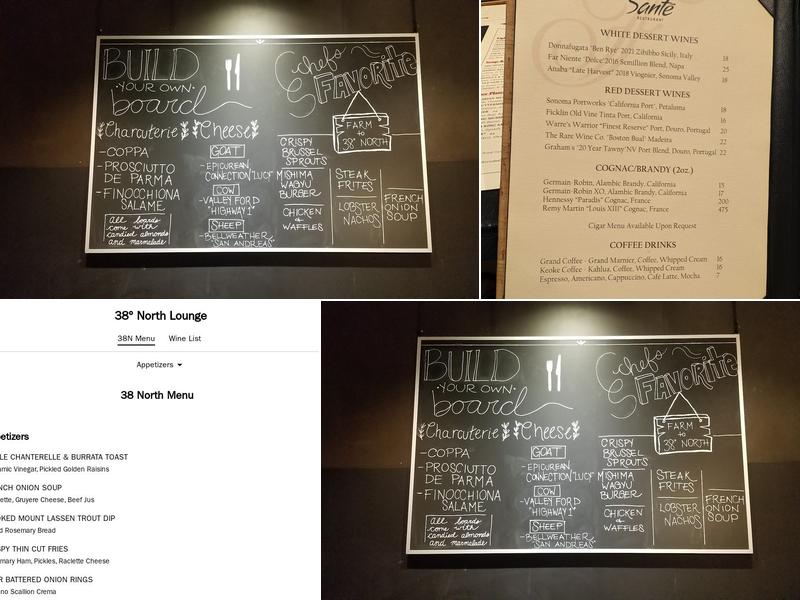 BUILD
·YOUR OWN·
board
Charcuterie
-COPPA
-PROSCIUTTO
DE PARMA
-FINOCCHIONA
SALAME
All boards
come with
candied almonds
and marmelade
Cheese
GOAT
-EPICUREAN
CONNECTION "LUCY"
COW
-VALLEY FORD
"HIGHWAY 1"
SHEEP
-BELLWEATHER
"SAN ANDREAS"
Chefs
FAVORITE
FARM
to
38° NORTH
CRISPY
BRUSSEL
SPROUTS
MISHIMA
WAGYU
BURGER
CHICKEN
&
WAFFLES
STEAK
FRITES
LOBSTER
NACHOS
FRENCH
ONION
SOUP
Santé
RESTAURANT
WHITE DESSERT WINES
Donnafugata 'Ben Rye' 2021 Zibibbo Sicily, Italy 18
Far Niente 'Dolce' 2016 Semillion Blend, Napa 25
Anaba "Late Harvest" 2018 Viognier, Sonoma Valley 18
RED DESSERT WINES
Sonoma Portworks 'California Port', Petaluma 18
Ficklin Old Vine Tinta Port, California 16
Warre's Warrior "Finest Reserve" Port, Douro, Portugal 20
The Rare Wine Co. 'Boston Bual' Madeira 22
Graham's '20 Year Tawny' NV Port Blend, Douro, Portugal 22
COGNAC/BRANDY (2oz.)
Germain-Robin, Alambic Brandy, California 15
Germain-Robin XO, Alambic Brandy, California 17
Hennessy "Paradis" Cognac, France 200
Remy Martin "Louis XIII" Cognac, France 475
Cigar Menu Available Upon Request
COFFEE DRINKS
Grand Coffee - Grand Marnier, Coffee, Whipped Cream 16
Keoke Coffee - Kahlua, Coffee, Whipped Cream 16
Espresso, Americano, Cappuccino, Café Latte, Mocha 7
38° North Lounge
38N Menu Wine List
Appetizers
38 North Menu
petizers
LE CHANTERELLE & BURRATA TOAST
amic Vinegar, Pickled Golden Raisins
NCH ONION SOUP
ette, Gruyere Cheese, Beef Jus
OKED MOUNT LASSEN TROUT DIP
d Rosemary Bread
SPY THIN CUT FRIES
mary Ham, Pickles, Raclette Cheese
R BATTERED ONION RINGS
no Scallion Crema
BUILD
·YOUR OWN·
board
Charcuterie
-COPPA
-PROSCIUTTO
DE PARMA
-FINOCCHIONA
SALAME
All boards
come with
candied almonds
and marmelade
Cheese
GOAT
-EPICUREAN
CONNECTION "LUCY"
COW
-VALLEY FORD
"HIGHWAY 1"
SHEEP
-BELLWEATHER
"SAN ANDREAS"
Chefs
FAVORITE
FARM
to
38° NORTH
CRISPY
BRUSSEL
SPROUTS
MISHIMA
WAGYU
BURGER
CHICKEN
&
WAFFLES
STEAK
FRITES
LOBSTER
NACHOS
FRENCH
ONION
SOUP